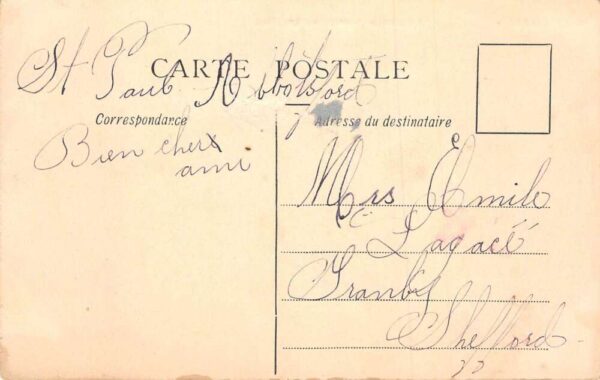 St Paul Abbotsford
CARTE POSTALE
Correspondance
Adresse du destinataire
Bien cher
ami
Mrs Emile
Lagacé
Granby
Shefford